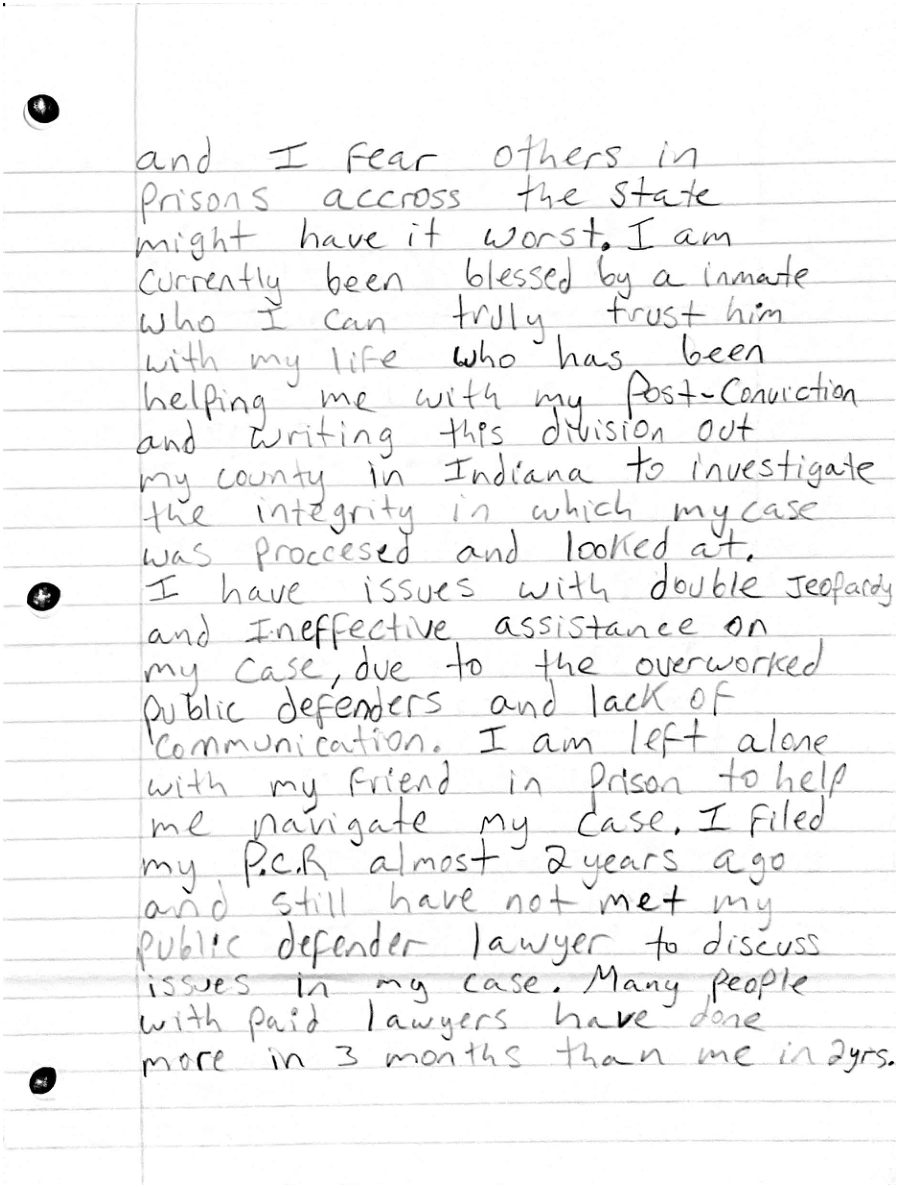 and I fear others in
Prisons accross the state
might have it worst. I am
currently been blessed by a inmate
who I can truly trust him
with my life who has been
helping me with my Post-Conviction
and writing this division out
my county in Indiana to investigate
the integrity in which my case
was proccesed and looked at.
I have issues with double Jeopardy
and Ineffective assistance on
my case, due to the overworked
public defenders and lack of
communication. I am left alone
with my friend in Prison to help
me navigate my case. I filed
my P.C.R almost 2 years ago
and still have not met my
public defender lawyer to discuss
issues in my case. Many people
with paid lawyers have done
more in 3 months than me in 2yrs.